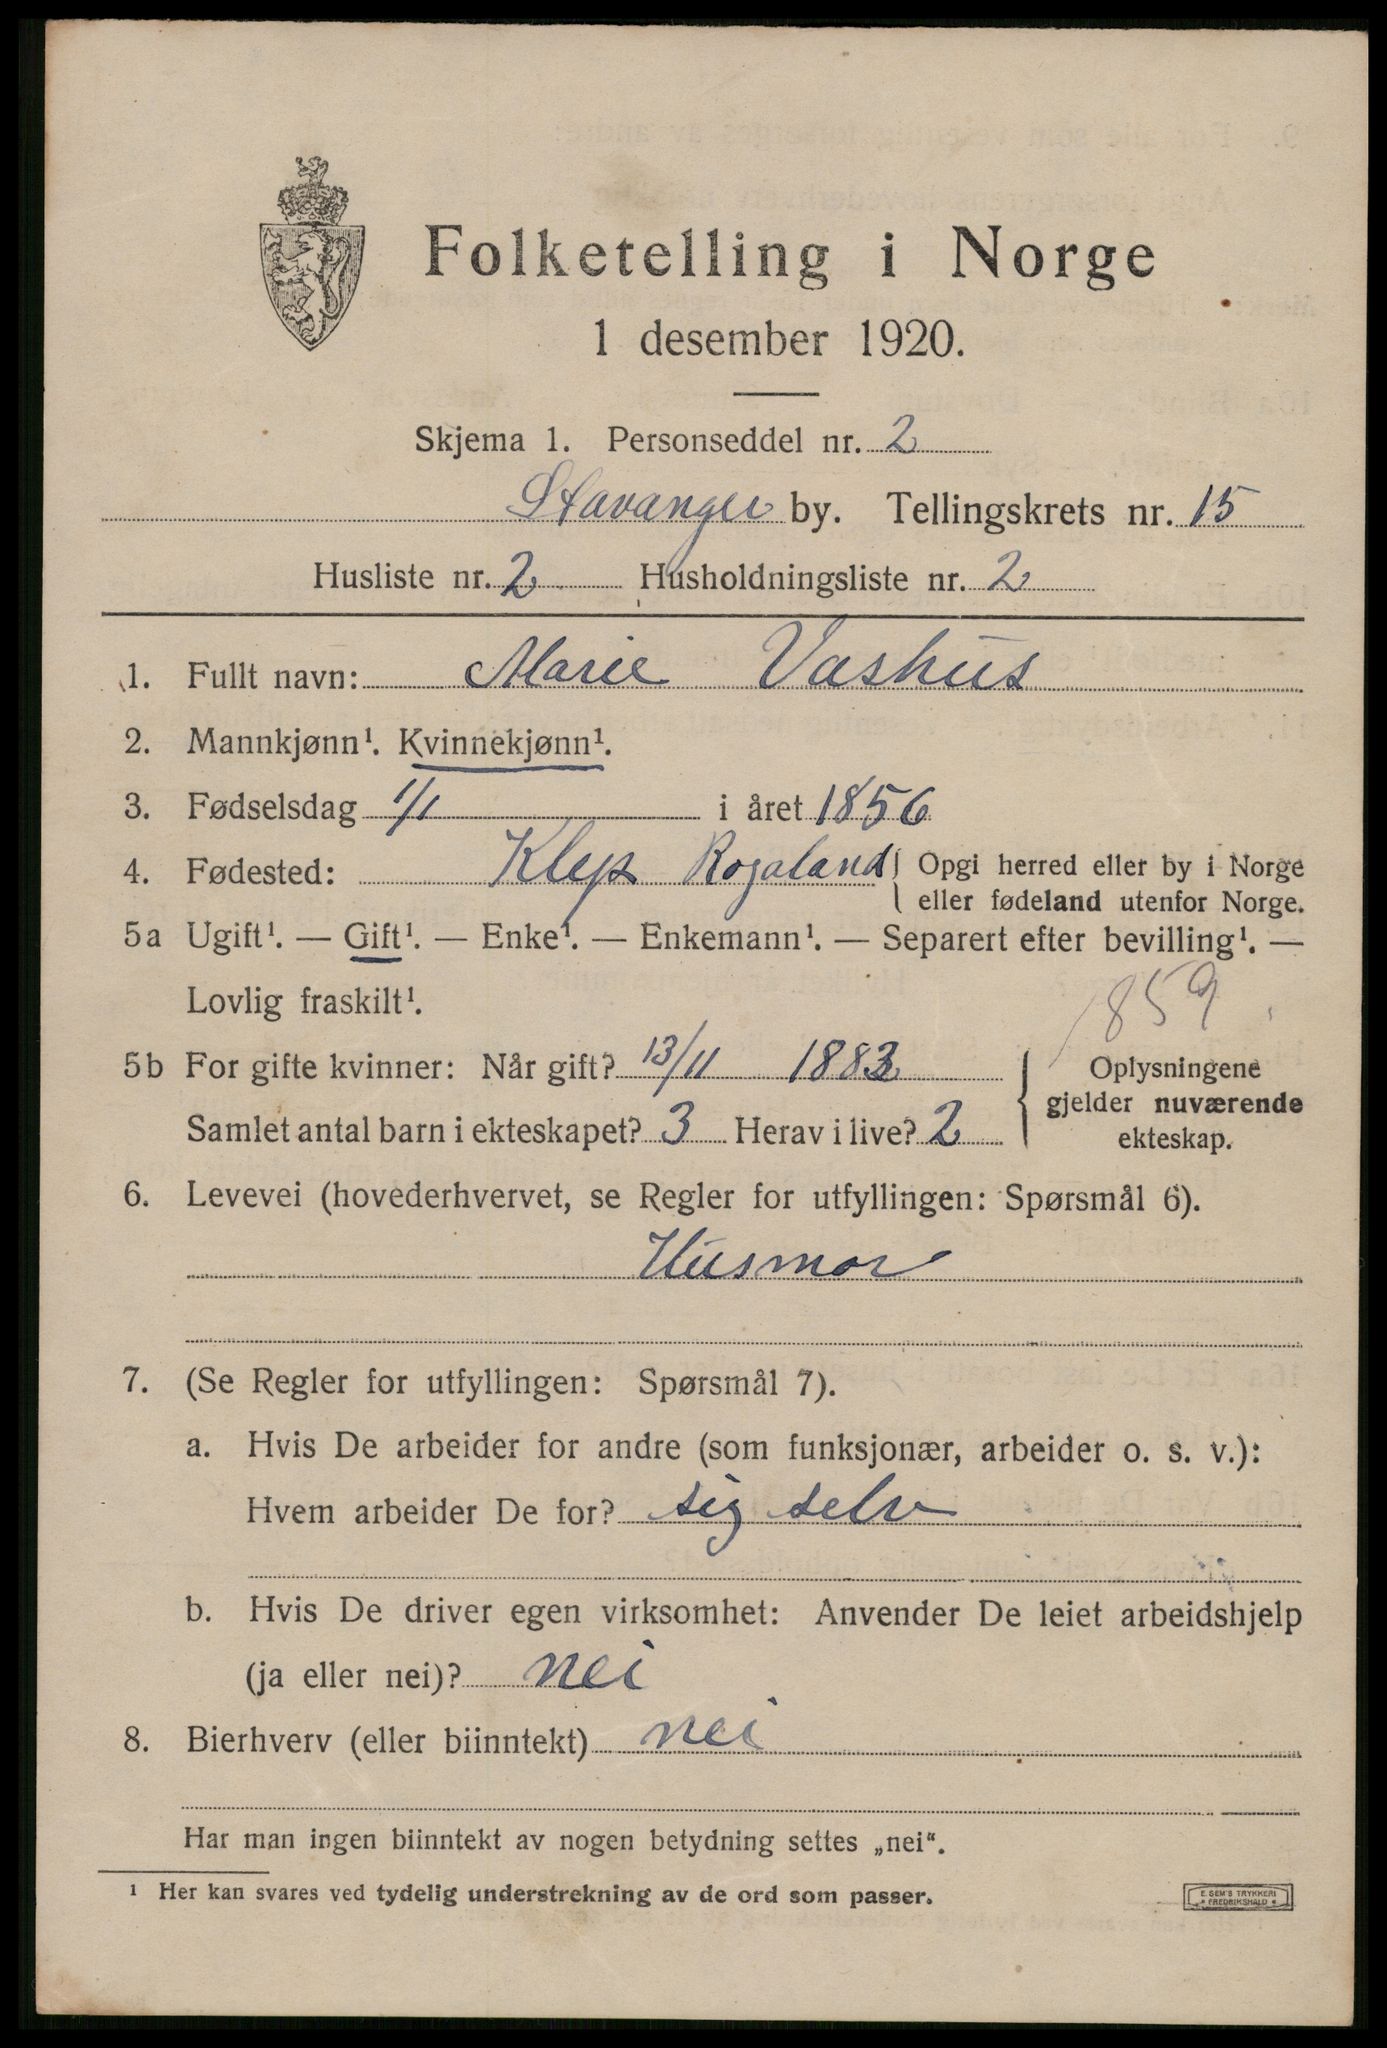 Folketelling i Norge
1 desember 1920.
Skjema 1. Personseddel nr. 2
Stavanger by. Tellingskrets nr. 15
Husliste nr. 2 Husholdningsliste nr. 2
1. Fullt navn: Marie Vashus
2. Mannkjønn¹. Kvinnekjønn¹.
3. Fødselsdag 1/1 i året 1856
4. Fødested: Klep Rogaland { Opgi herred eller by i Norge
eller fødeland utenfor Norge.
5a Ugift¹. — Gift¹. — Enke¹. — Enkemann¹. — Separert efter bevilling¹. —
Lovlig fraskilt¹.
859
5b For gifte kvinner: Når gift? 13/11 1883 { Oplysningene
gjelder nuværende
Samlet antal barn i ekteskapet? 3 Herav i live? 2 ekteskap.
6. Levevei (hovederhvervet, se Regler for utfyllingen: Spørsmål 6).
Husmor
7. (Se Regler for utfyllingen: Spørsmål 7).
a. Hvis De arbeider for andre (som funksjonær, arbeider o. s. v.):
Hvem arbeider De for? sig selv
b. Hvis De driver egen virksomhet: Anvender De leiet arbeidshjelp
(ja eller nei)? nei
8. Bierhverv (eller biinntekt) nei
Har man ingen biinntekt av nogen betydning settes „nei“.
¹ Her kan svares ved tydelig understrekning av de ord som passer.
E. SEM'S TRYKKERI
FREDRIKSHALD